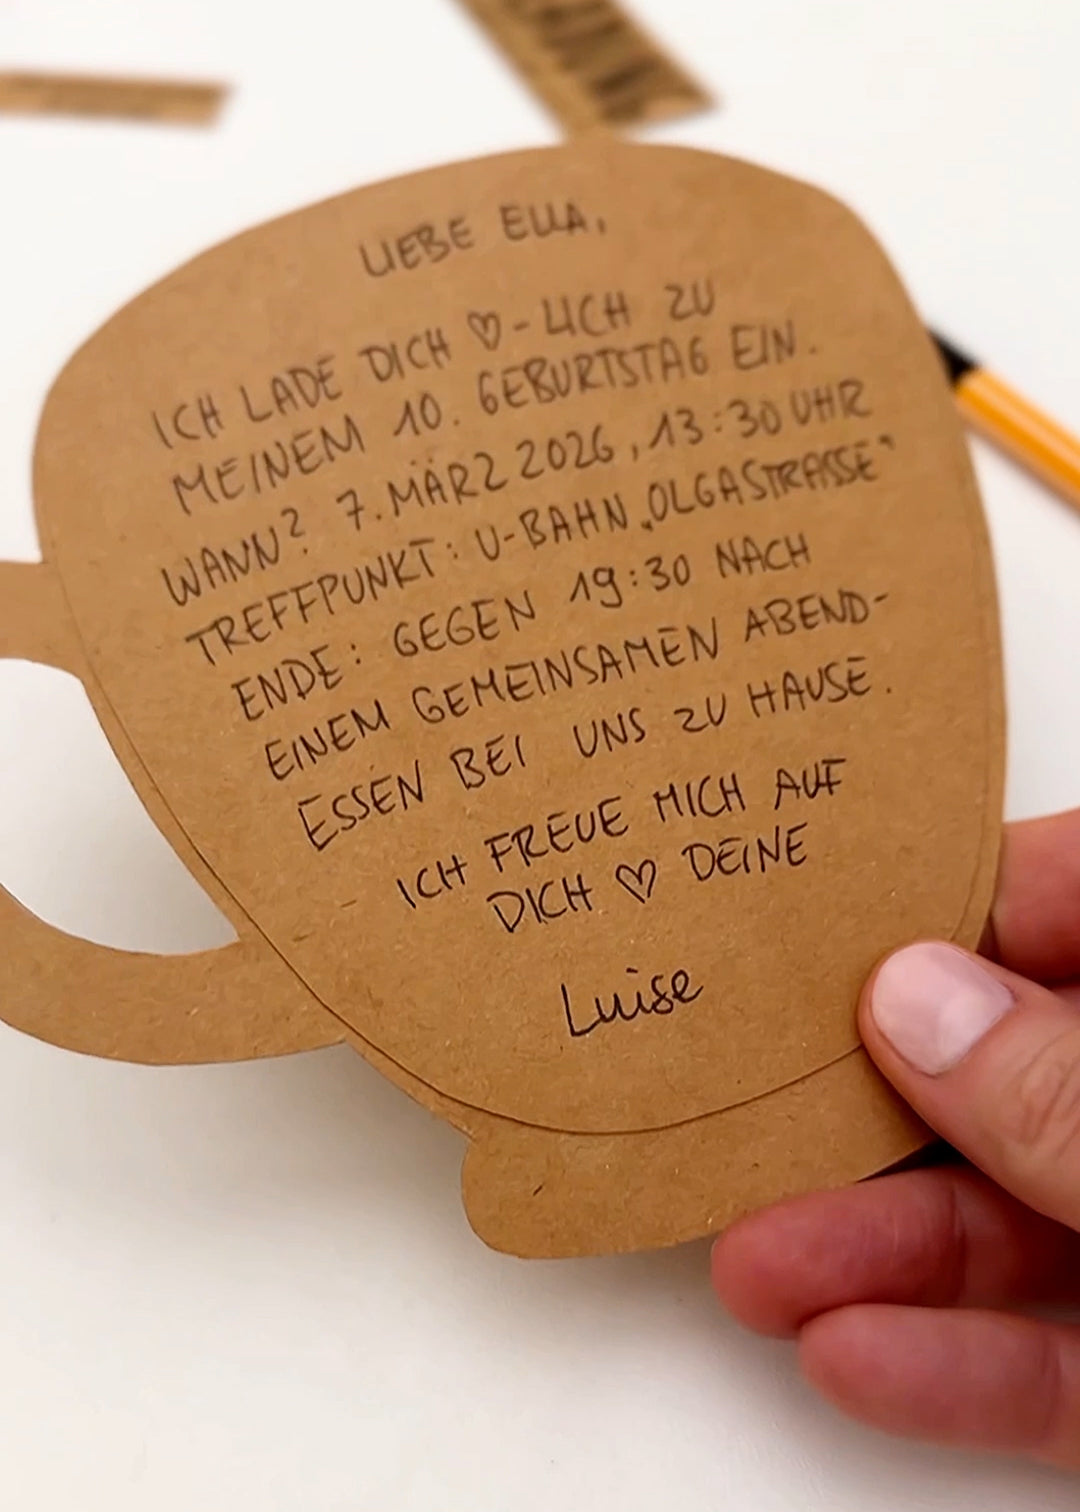 LIEBE ELLA,
ICH LADE DICH ♡-LICH ZU
MEINEM 10. GEBURTSTAG EIN.
WANN? 7. MÄRZ 2026, 13:30 UHR
TREFFPUNKT: U-BAHN „OLGASTRASSE“
ENDE: GEGEN 19:30 NACH
EINEM GEMEINSAMEN ABEND-
ESSEN BEI UNS ZU HAUSE.
ICH FREUE MICH AUF
DICH ♡ DEINE
Luise